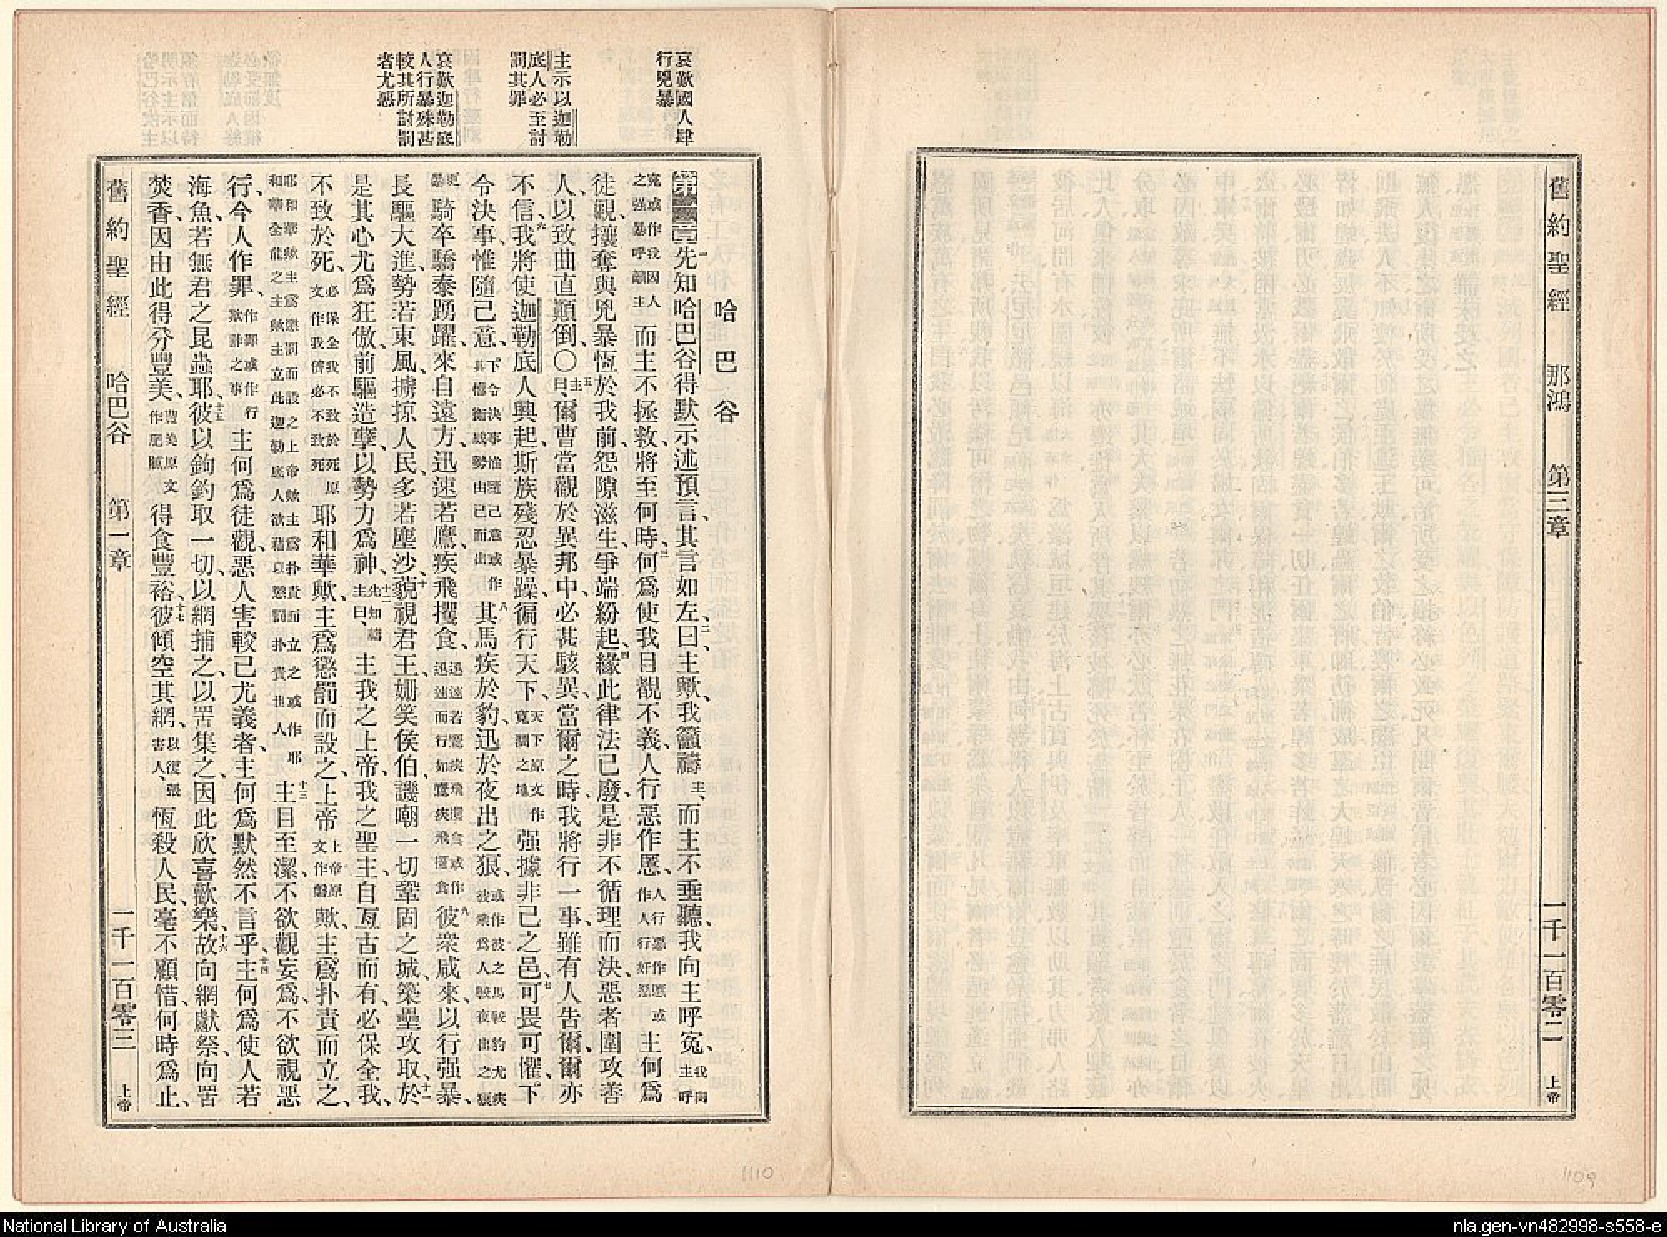 舊約聖經 那鴻 第三章 一千一百零二 上帝
1109
哀歎國人肆
行兇暴
主示以迦勒
底人必至討
罰其罪
哀歎迦勒底
人行暴殊甚
較其所討罰
者尤惡
哈巴谷
第一章 先知哈巴谷得默示述預言其言如左、二曰主歟、我籲禱主、而主不垂聽、我向主呼冤、我因主呼
冤或作我因人之強暴呼籲主而主不拯救、將至何時、三何爲使我目覩不義、人行惡作慝、人行惡作慝或作人行奸惡主何爲
徒觀、攘奪與兇暴恆於我前、怨隙滋生、爭端紛起、四緣此律法已廢、是非不循理而決、惡者圍攻善
人、以致曲直顚倒、〇五主曰、爾曹當觀於異邦中、必甚駭異、當爾之時、我將行一事、雖有人告爾、爾亦
不信、六我將使迦勒底人興起、斯族殘忍暴躁、徧行天下、天下原文作寬闊之地强據非己之邑、七可畏可懼、下
令決事、惟隨己意、八其馬疾於豹、迅於夜出之狼、
騎卒驕泰踴躍、來自遠方、迅速若鷹、疾飛攫食、九彼衆咸來、以行强暴、
長驅大進、勢若東風、擄掠人民、多若塵沙、十藐視君王、姍笑侯伯、譏嘲一切鞏固之城、築壘攻取、十一於
是其心尤爲狂傲、前驅造孽、以勢力爲神、十二先知禱主曰、主我之上帝、我之聖主、自亙古而有、必保全我、
不致於死、耶和華歟、主爲懲罰而設之、上帝歟、主爲扑責而立之、
十三主目至潔、不欲觀妄爲、不欲視惡
行、今人作罪、主何爲徒觀、惡人害較己尤義者、主何爲默然不言乎、十四主何爲使人若
海魚、若無君之昆蟲耶、十五彼以鉤釣取一切、以網捕之、以罟集之、因此欣喜歡樂、十六故向網獻祭、向罟
焚香、因由此得分豐美、豐美原文作肥膩得食豐裕、十七彼傾空其網、以復張害人、恆殺人民、毫不顧惜、何時爲止、
舊約聖經 哈巴谷 第一章 一千一百零三 上帝
1110
National Library of Australia
nla.gen-vn482998-s558-e